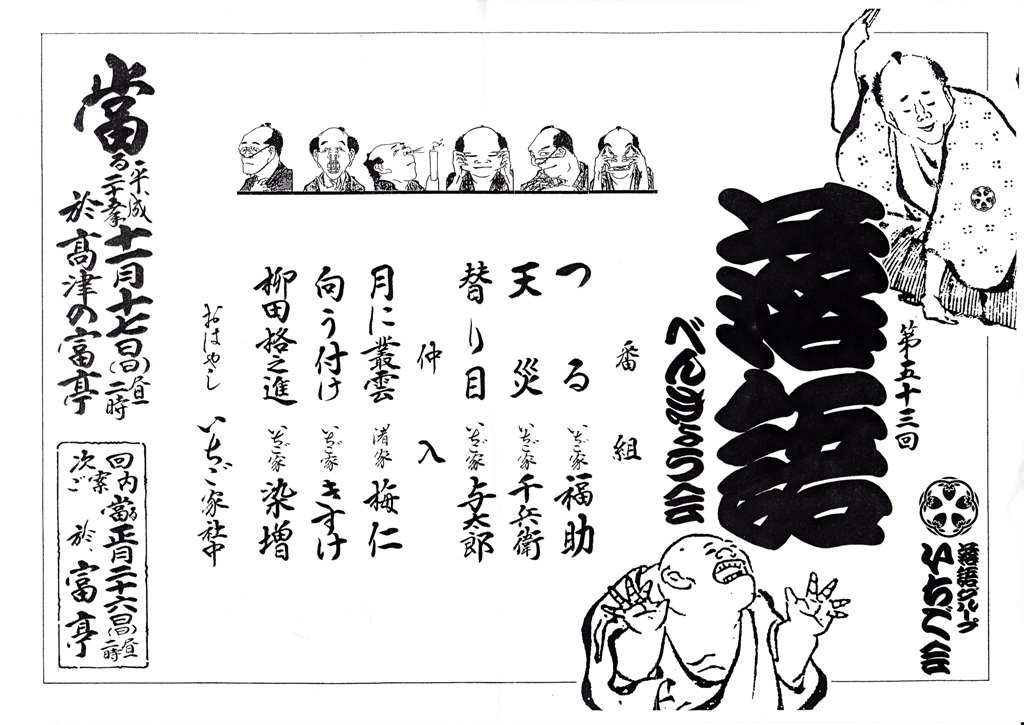 第五十三回
落語
べんきょう会
落語グループ
いちご会
番組
つる いちご家 福助
天災 いちご家 千兵衛
替り目 いちご家 与太郎
仲入
月に叢雲 渚家 梅仁
向う付け いちご家 きすけ
柳田格之進 いちご家 染増
おはやし いちご家社中
當る平成二十五季十一月十七日(日)昼二時
於高津の富亭
次回ご案内
當る正月二十六日(日)昼二時
於、富亭